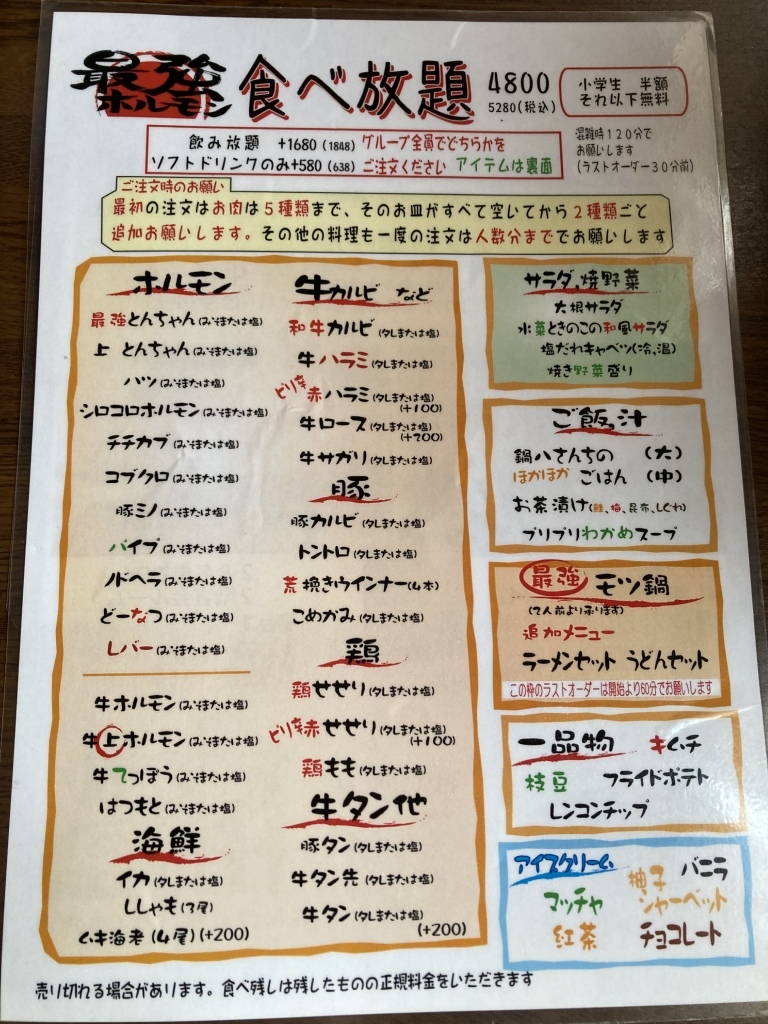 最強
ホルモン
食べ放題
4800
5280(税込)
小学生 半額
それ以下無料
飲み放題 +1680(1848) グループ全員でどちらかを
ソフトドリンクのみ+580(638) ご注文ください アイテムは裏面
混雑時120分で
お願いします
(ラストオーダー30分前)
ご注文時のお願い
最初の注文はお肉は5種類まで、そのお皿がすべて空いてから2種類ごと
追加お願いします。その他の料理も一度の注文は人数分まででお願いします
ホルモン
最強とんちゃん(みそまたは塩)
上 とんちゃん(みそまたは塩)
ハツ(みそまたは塩)
シロコロホルモン(みそまたは塩)
チチカブ(みそまたは塩)
コブクロ(みそまたは塩)
豚ミノ(みそまたは塩)
パイプ(みそまたは塩)
ノドヘラ(みそまたは塩)
どーなつ(みそまたは塩)
レバー(みそまたは塩)
牛ホルモン(みそまたは塩)
牛上ホルモン(みそまたは塩)
牛てっぽう(みそまたは塩)
はつもと(みそまたは塩)
海鮮
イカ(タレまたは塩)
ししゃも(3尾)
ムキ海老(4尾)(+200)
牛カルビ など
和牛カルビ(タレまたは塩)
牛ハラミ(タレまたは塩)
ピリ辛赤ハラミ(タレまたは塩)
(+100)
牛ロース(タレまたは塩)
(+200)
牛サガリ(タレまたは塩)
豚
豚カルビ(タレまたは塩)
トントロ(タレまたは塩)
荒挽きウインナー(4本)
こめかみ(タレまたは塩)
鶏
鶏せせり(タレまたは塩)
ピリ辛赤せせり(タレまたは塩)
(+100)
鶏もも(タレまたは塩)
牛タン他
豚タン(タレまたは塩)
牛タン先(タレまたは塩)
牛タン(タレまたは塩)
(+200)
サラダ,焼野菜
大根サラダ
水菜ときのこの和風サラダ
塩だれキャベツ(冷,温)
焼き野菜盛り
ご飯,汁
鍋八さんちの (大)
ほかほか ごはん (中)
お茶漬け(鮭、梅、昆布、しぐれ)
プリプリわかめスープ
最強 モツ鍋
(2人前より承ります)
追加メニュー
ラーメンセット うどんセット
この枠のラストオーダーは開始より60分でお願いします
一品物 キムチ
枝豆 フライドポテト
レンコンチップ
アイスクリーム バニラ
マッチャ 柚子シャーベット
紅茶 チョコレート
売り切れる場合があります。食べ残しは残したものの正規料金をいただきます